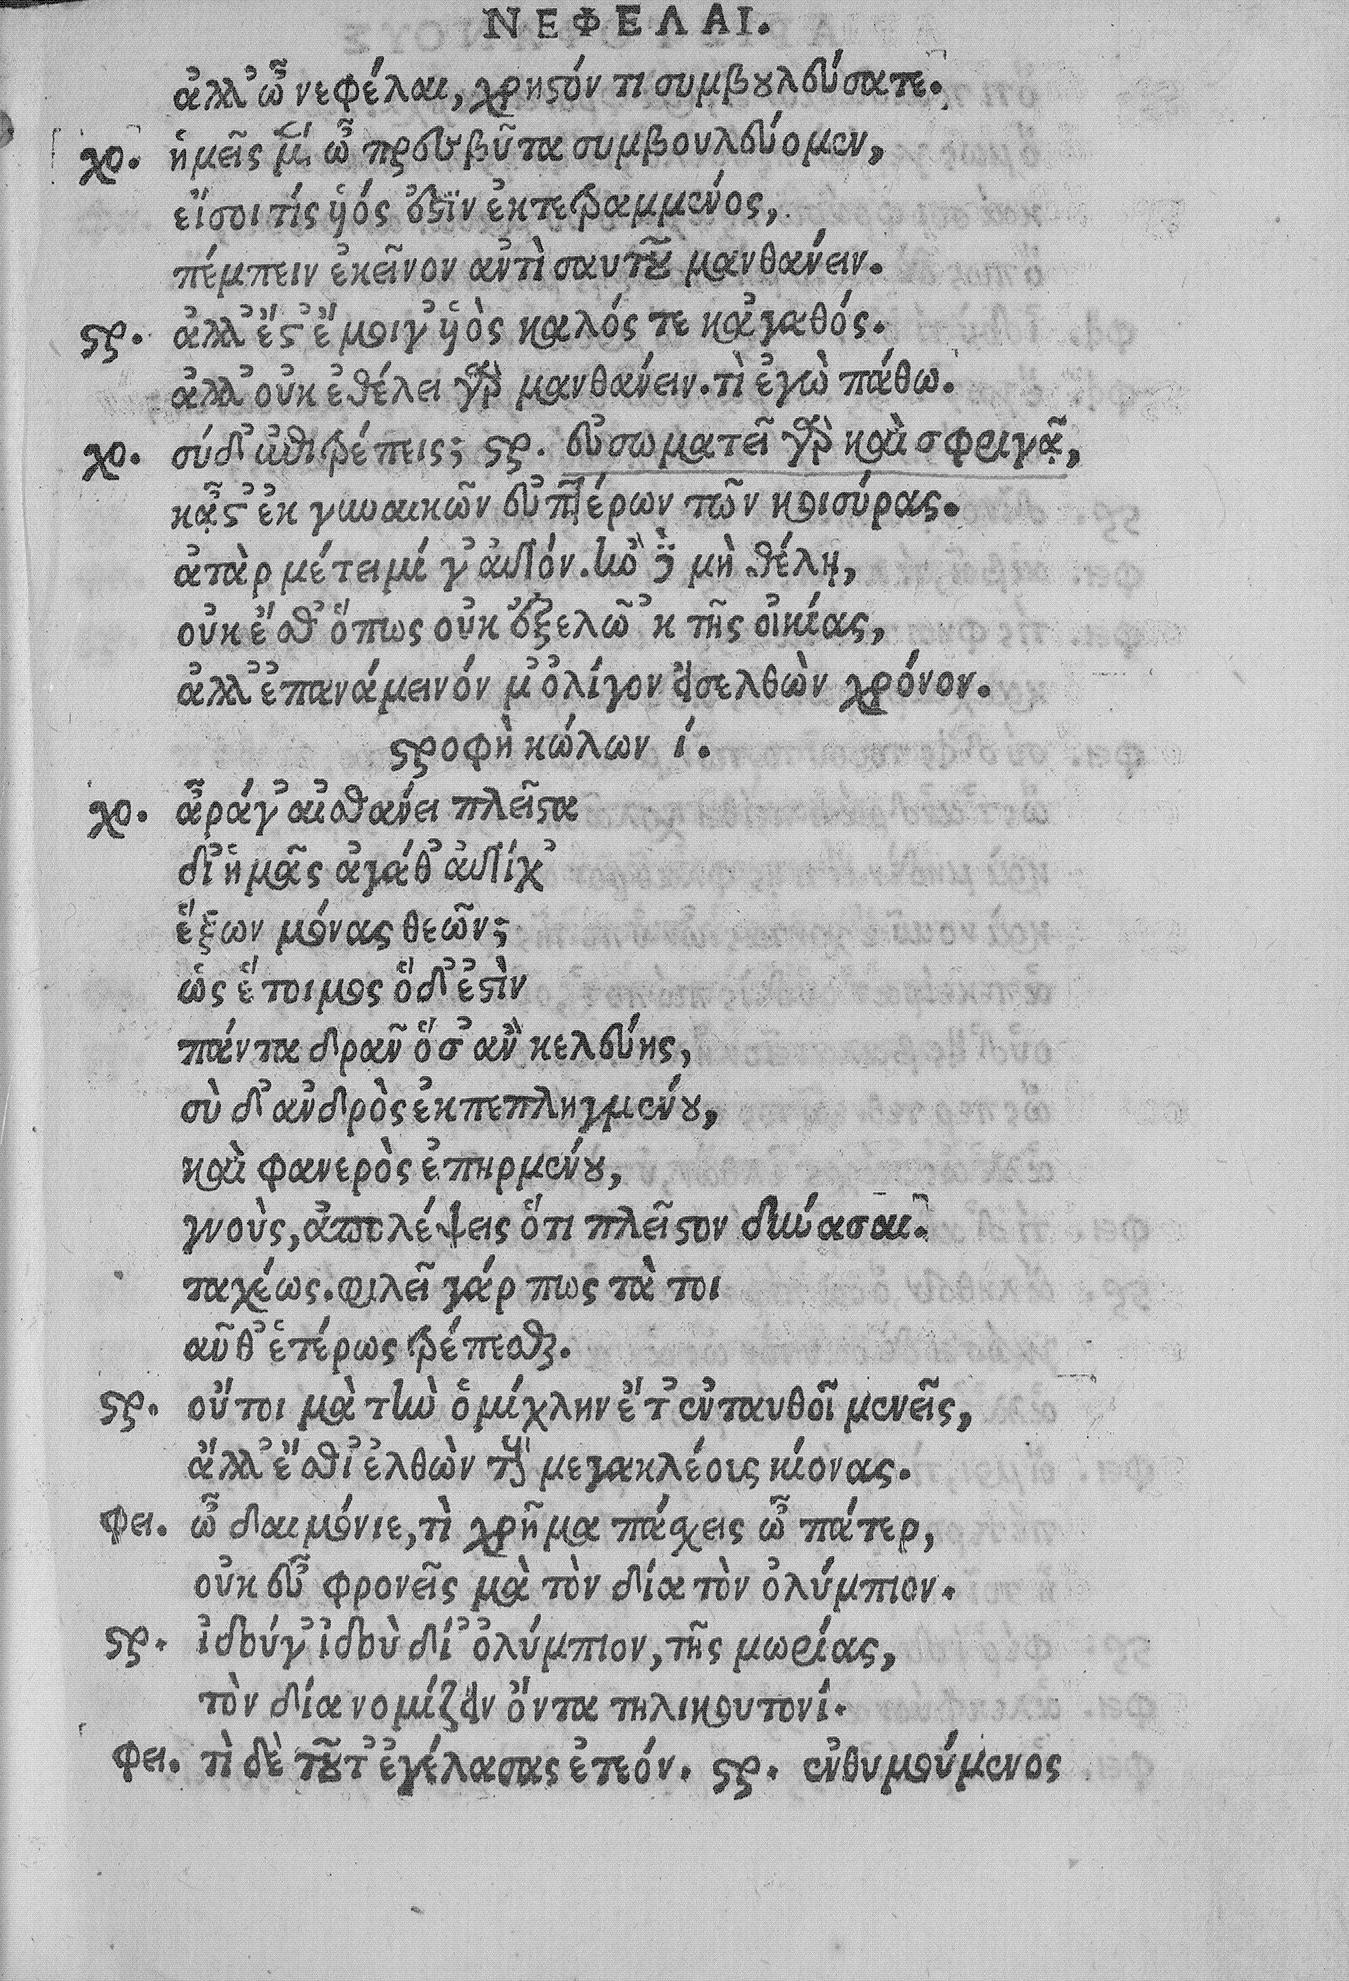 ΝΕΦΕΛΑΙ.
ἀλλ' ὦ νεφέλαι, χρηστόν τι συμβουλεύσατε.
χο. ἡμεῖς μ̄ ὦ πρεσβῦτα συμβουλεύομεν,
εἴ σοι τίς ὑός ἐστὶν ἐκτεθραμμένος,
πέμπειν ἐκεῖνον ἀντὶ σαυτοῦ μανθάνειν.
στρ. ἀλλ' ἔστ' ἔμοιγ' ὑὸς καλός τε κἀγαθός.
ἀλλ' οὐκ ἐθέλει γὰρ μανθάνειν. τὶ ἐγὼ πάθω.
χο. σύ δ' ἐπιτρέπεις; στρ. εὐσωματεῖ γὰρ καὶ σφριγᾷ,
κᾆστ' ἐκ γυναικῶν εὐπτέρων τῶν κοισύρας.
ἀτὰρ μέτειμί γ' αὐτόν. κἂν δὲ μὴ θέλῃ,
οὐκ ἔσθ' ὅπως οὐκ ἐξελῶ 'κ τῆς οἰκίας,
ἀλλ' ἐπανάμεινόν μ' ὀλίγον εἰσελθὼν χρόνον.
στροφὴ κώλων ί.
χο. ἆρά γ' αἰσθάνει πλεῖστα
δι' ἡμᾶς ἀγάθ' αὐτίχ'
ἕξων μόνας θεῶν;
ὡς ἕτοιμος ὅδ' ἐστὶν
πάντα δρᾶν ὅσ' ἂν κελεύης,
σὺ δ' ἀνδρὸς ἐκπεπληγμένου,
καὶ φανερὸς ἐπηρμένου,
γνοὺς, ἀπολέψεις ὅτι πλεῖστον δύνασαι.
ταχέως. φιλεῖ γάρ πως τὰ τοι
αῦθ' ἑτέρως τρέπεσθαι.
στρ. οὔτοι μὰ τὴν ὁμίχλην ἔτ' ἐνταυθοῖ μενεῖς,
ἄλλ' ἔσθι' ἐλθὼν τοὺς μεγακλέοις κίονας.
φει. ὦ δαιμόνιε, τὶ χρῆμα πάσχεις ὦ πάτερ,
οὐκ εὖ φρονεῖς μὰ τὸν δία τὸν ὀλύμπιον.
στρ. ἰδού γ' ἰδοὺ δί' ὀλύμπιον, τῆς μωρίας,
τὸν δία νομίζειν ὄντα τηλικουτονί.
φει. τὶ δὲ τοῦτ' ἐγέλασας ἐτεόν. στρ. ἐνθυμούμενος